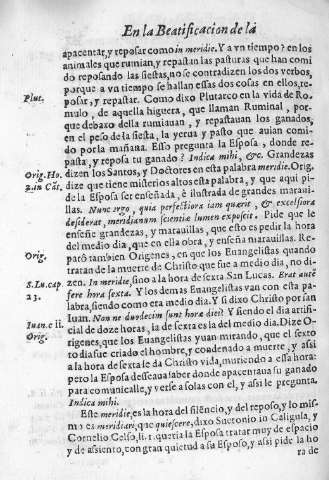 En la Beatificacion de la
apacentar, y reposar como in meridie. Y a vn tiempo? en los
animales que rumian, y repastan las pasturas que han comi
do reposando las siestas, no se contradizen los dos verbos,
porque a vn tiempo se hallan essas dos cosas en ellos, re-
Plut. posar, y repastar. Como dixo Plutarco en la vida de Ro-
mulo, de aquella higuera, que llaman Ruminal, por-
que debaxo della rumiauan, y repastauan los ganados,
en el peso de la siesta, la yerua y pasto que auian comi-
do por la mañana. Esso pregunta la Esposa, donde re-
pasta, y reposa tu ganado? Indica mihi, &c. Grandezas
Orig. Ho. dizen los Santos, y Doctores en esta palabra meridie. Orig.
2. in Cãt. dize que tiene misterios altos esta palabra, y que aqui pi-
de la Esposa ser enseñada, è ilustrada de grandes maraui-
llas. Nunc ergo, quia perfectiora tam quærit, & excelsiora
desiderat, meridianum scientiæ lumen exposcit. Pide que le
enseñe grandezas, y marauillas, que esto es pedir la hora
del medio dia, que en ella obra, y enseña marauillas. Re-
Orig. parò tambien Origenes, en que los Euangelistas quando
tratan de la muerte de Christo que fue a medio dia, no di-
S. Lu. cap. zen. In meridie, sino a la hora de sexta San Lucas. Erat autẽ
23. fere hora sexta. Y los demas Euangelistas van con esta pa-
labra, siendo como era medio dia. Y si dixo Christo por san
Iuan. c. 11. Iuan. Non ne duodecim sunt hora diei? Y siendo el dia artifi-
cial de doze horas, la de sexta es la del medio dia. Dize O-
Orig. rigenes, que los Euangelistas yuan mirando, que el sexto
dia fue criado el hombre, y condenado a muerte, y assi
a la hora de sexta le da Christo vida, muriendo a essa hora:
pero la Esposa desseaua saber donde apacentaua su ganado
para comunicalle, y verse a solas con el, y assi le pregunta.
Indica mihi.
Este meridie, es la hora del silencio, y del reposo, y lo mis-
mo es meridiari, que quiescere, dixo Suetonio in Caligula, y
Cornelio Celso, li. 1. queria la Esposa tratar muy de espacio
y de assiento, con gran quietud a su Esposo, y assi pide la ho
ra de